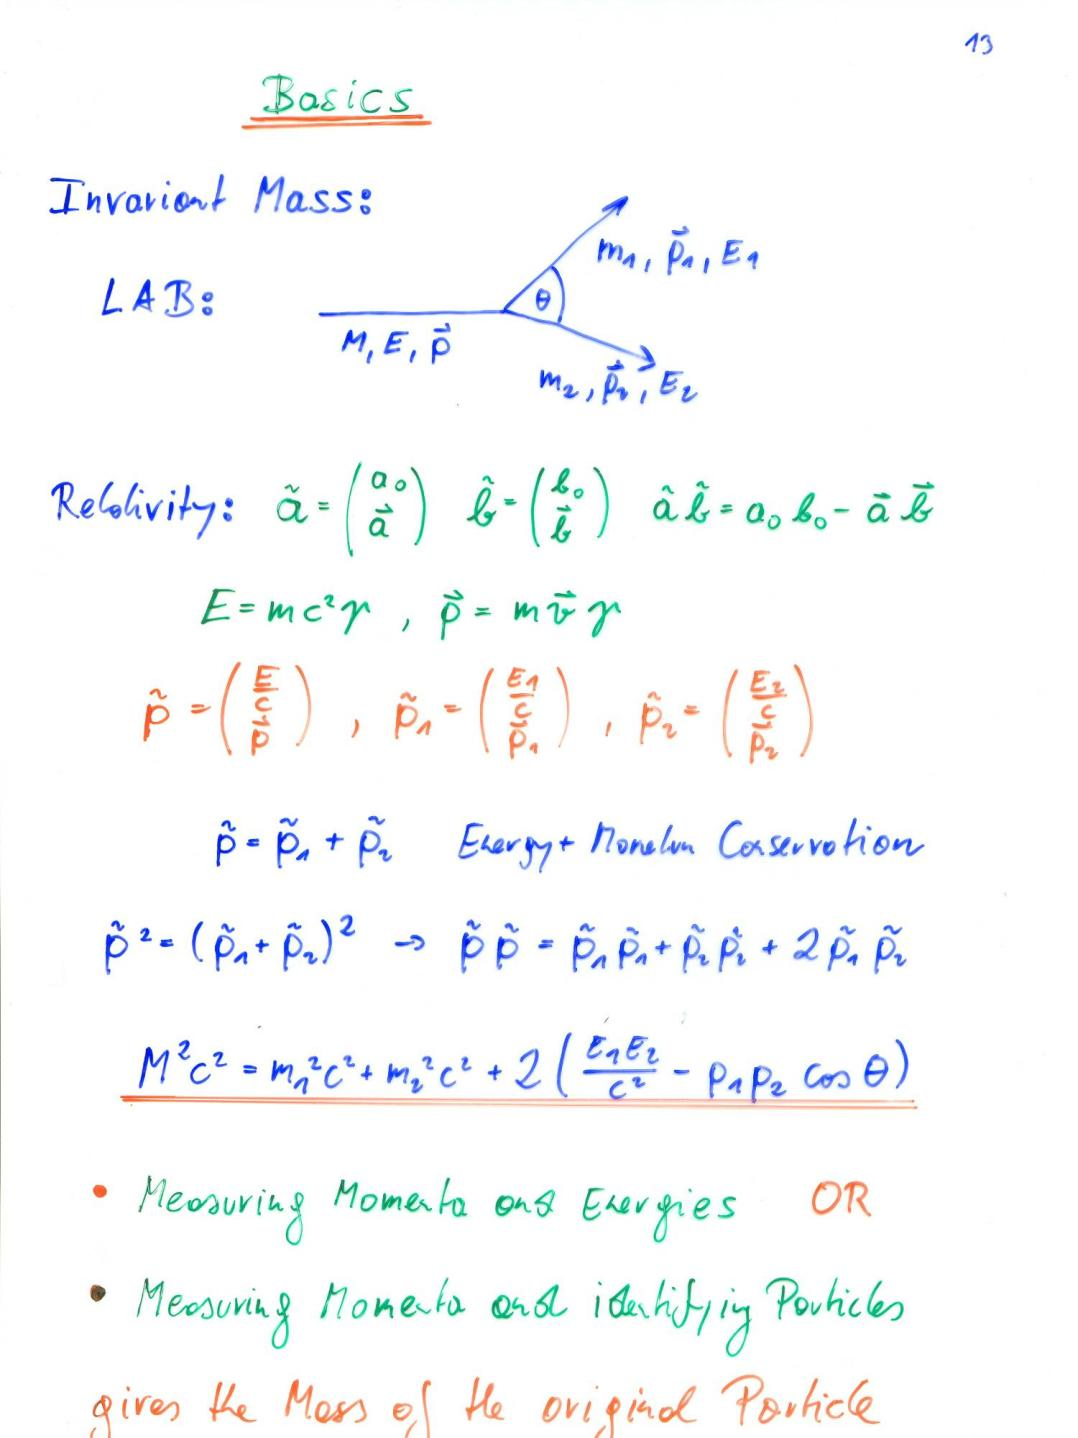 13
Basics
Invariant Mass:
m₁, p⃗₁, E₁
LAB:
θ
M, E, p⃗
m₂, p⃗₂, E₂
Relativity: ã = (a₀ a⃗) b̃ = (b₀ b⃗) ã b̃ = a₀ b₀ - a⃗ b⃗
E = mc²γ , p⃗ = m v⃗ γ
p̃ = (E/c p⃗) , p̃₁ = (E₁/c p⃗₁) , p̃₂ = (E₂/c p⃗₂)
p̃ = p̃₁ + p̃₂ Energy + Momentum Conservation
p̃² = (p̃₁ + p̃₂)² → p̃ p̃ = p̃₁ p̃₁ + p̃₂ p̃₂ + 2 p̃₁ p̃₂
M²c² = m₁²c² + m₂²c² + 2 (E₁E₂/c² - p₁p₂ cos θ)
• Measuring Momenta and Energies OR
• Measuring Momenta and identifying Particles
gives the Mass of the original Particle